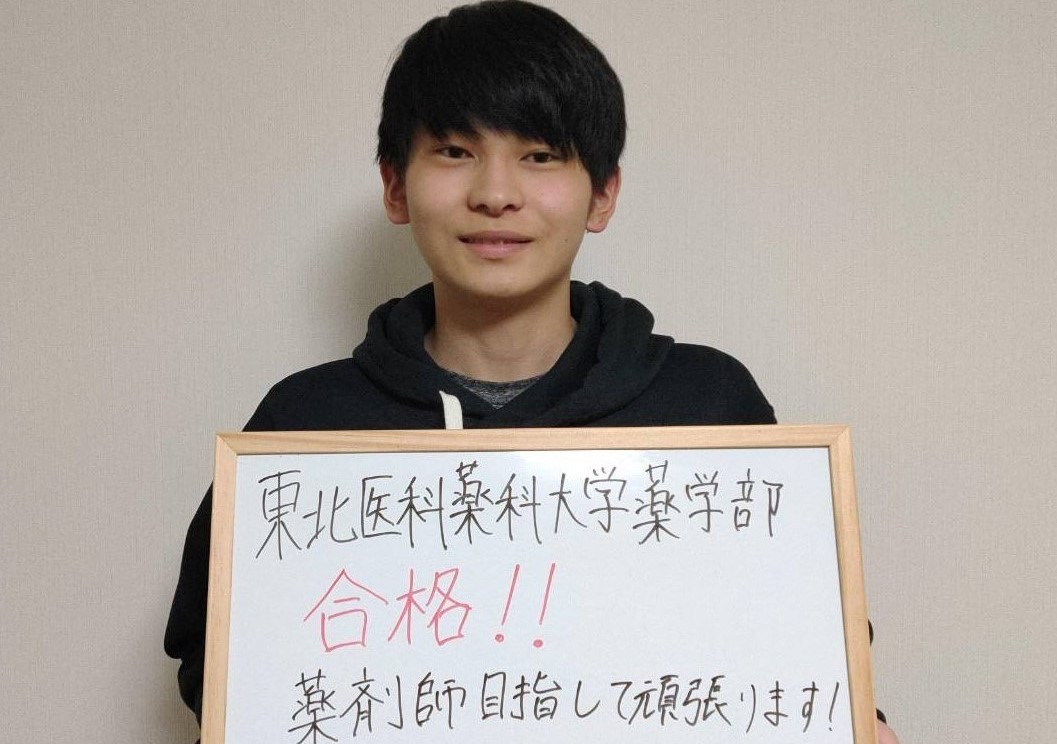 東北医科薬科大学薬学部
合格!!
薬剤師目指して頑張ります!